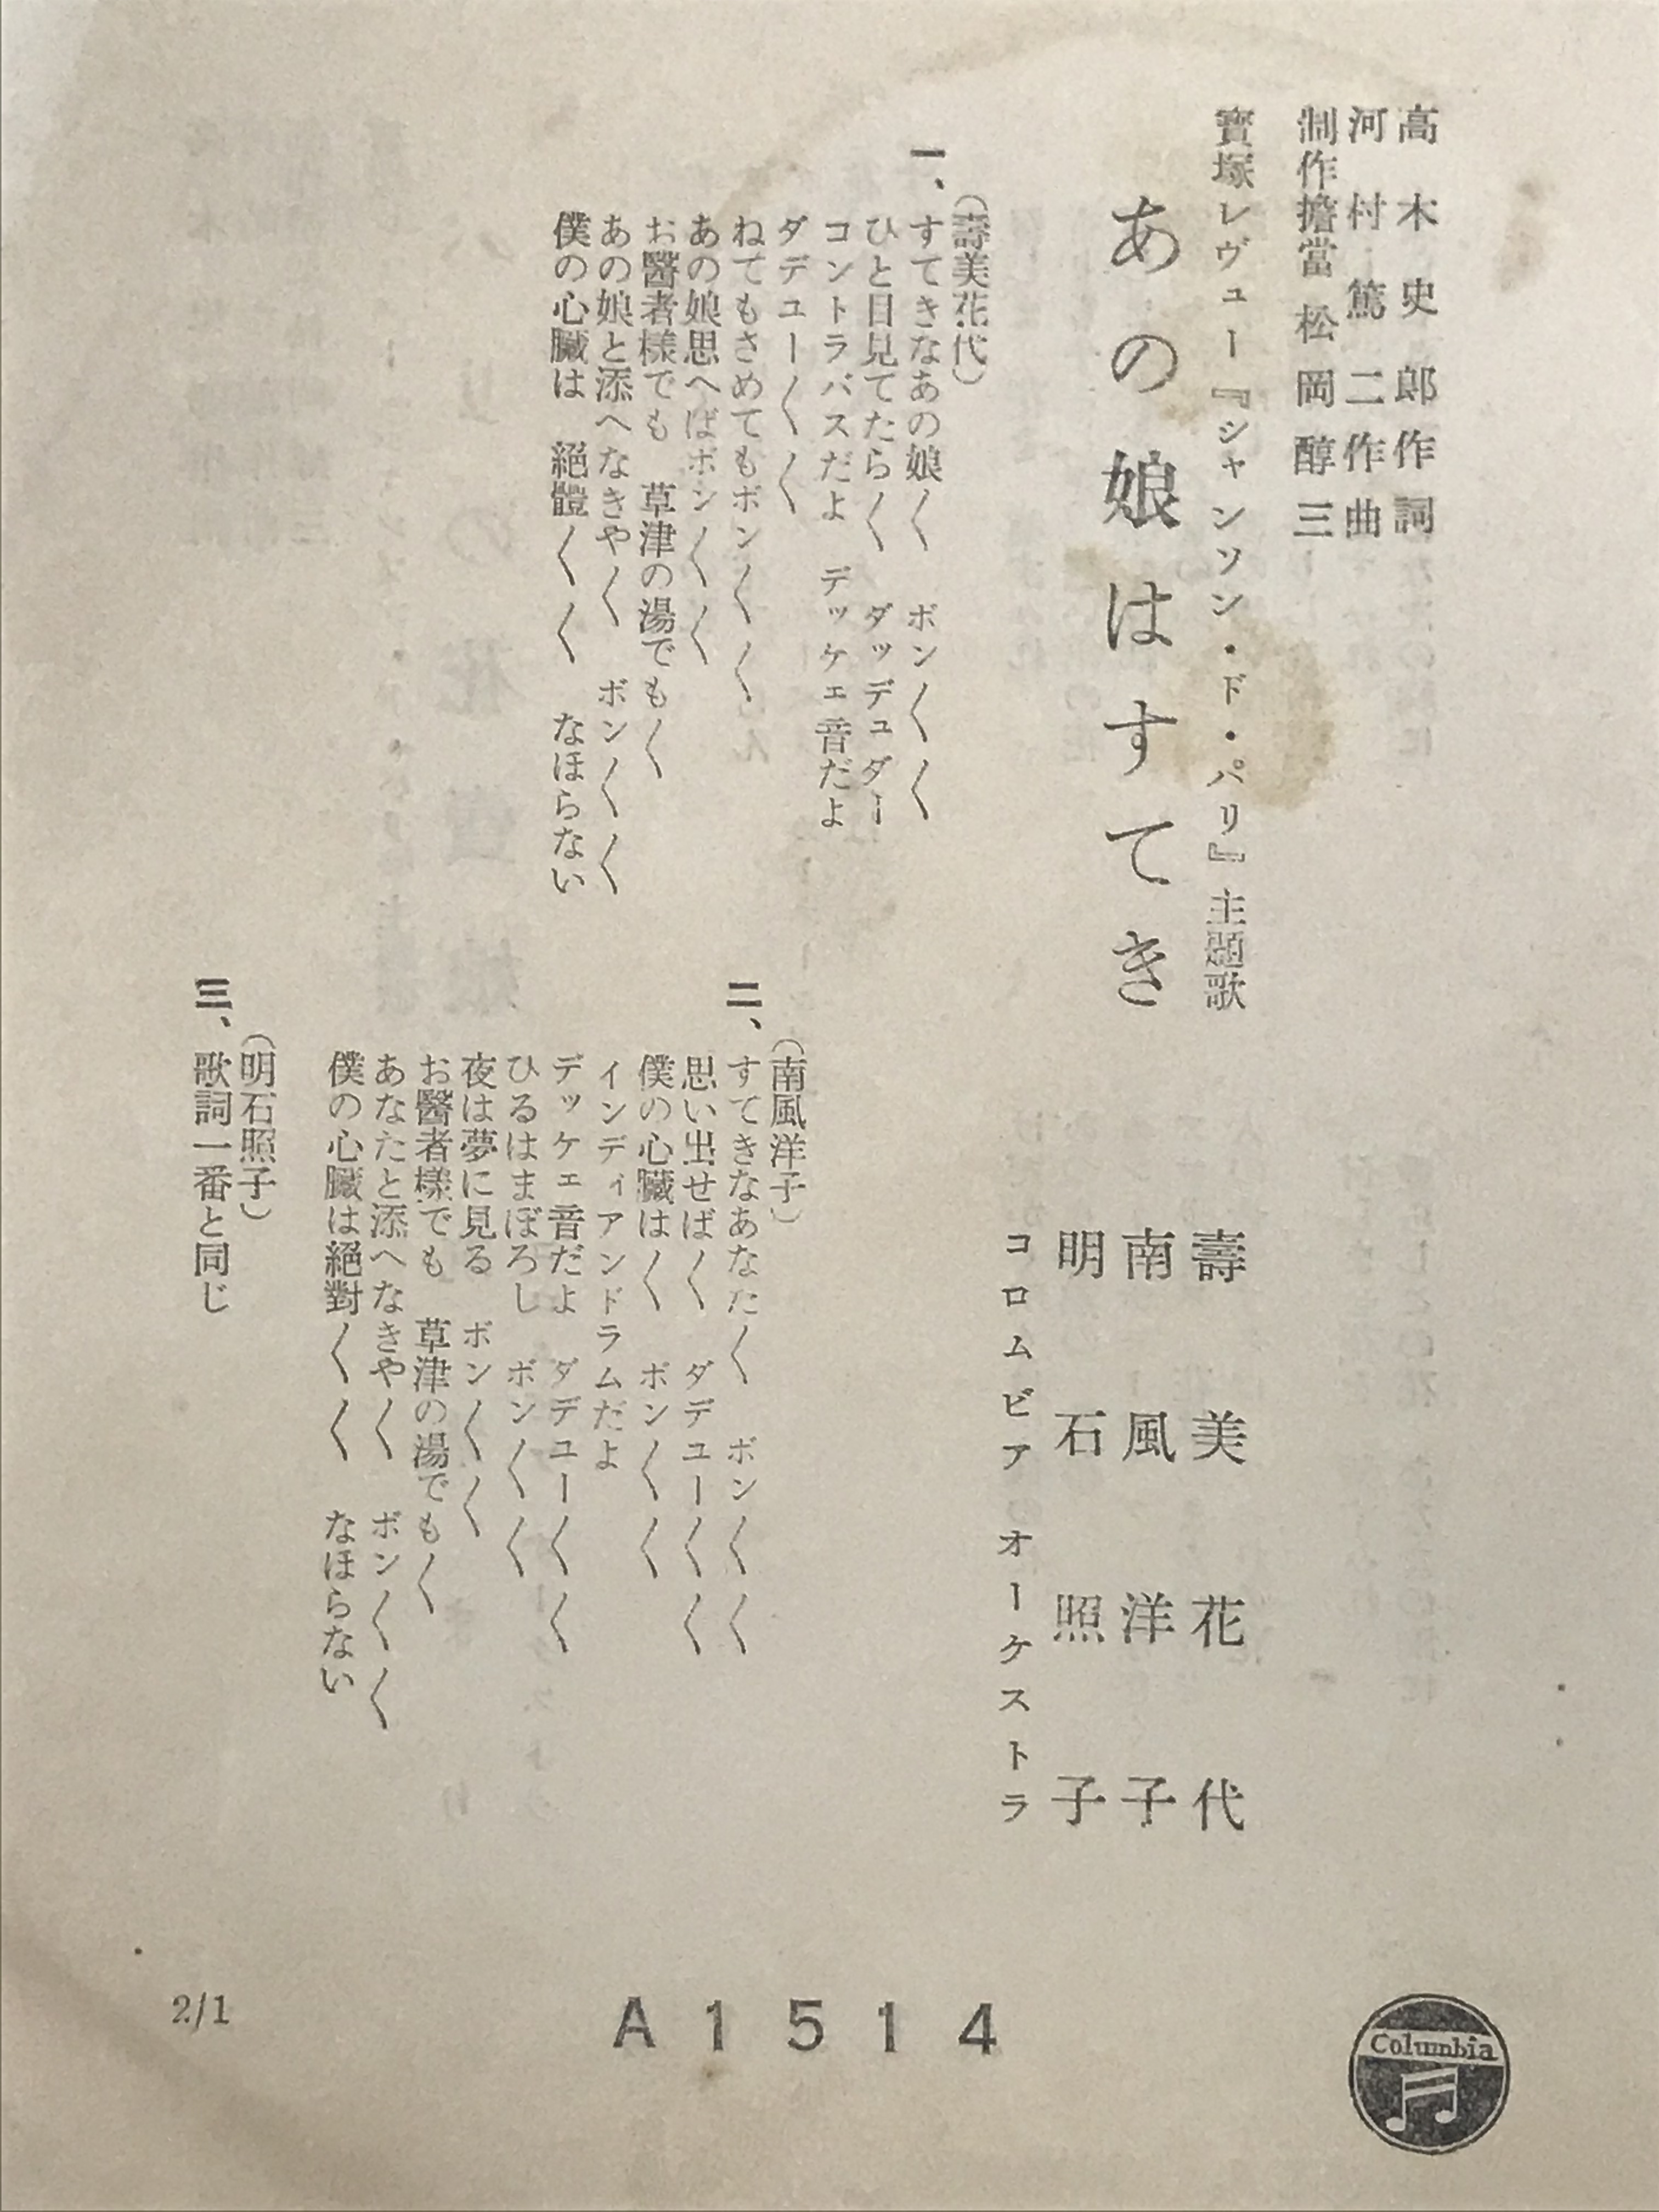 高木史郎作詞
河村篤二作曲
制作擔當 松岡醇三
寶塚レヴュー『シャンソン・ド・パリ』主題歌
あの娘はすてき
壽美花代
南風洋子
明石照子
コロムビア オーケストラ
(壽美花代)
一、すてきなあの娘〱 ボン〱〱
ひと目見てたら〱 ダッデュダー
コントラバスだよ デッケェ音だよ
ダデユー〱〱
ねてもさめてもボン〱〱
あの娘思へばボン〱〱
お醫者様でも 草津の湯でも〱
あの娘と添へなきや〱 ボン〱〱
僕の心臓は 絕體〱〱 なほらない
(南風洋子)
二、すてきなあなた〱 ボン〱〱
思い出せば〱 ダデユー〱〱
僕の心臓は〱 ボン〱〱
インディアンドラムだよ
デッケェ音だよ ダデユー〱〱
ひるはまぼろし ボン〱〱
夜は夢に見る ボン〱〱
お醫者様でも 草津の湯でも〱
あなたと添へなきや〱 ボン〱〱
僕の心臓は絕對〱〱 なほらない
(明石照子)
三、歌詞一番と同じ
2/1
A1514
Columbia